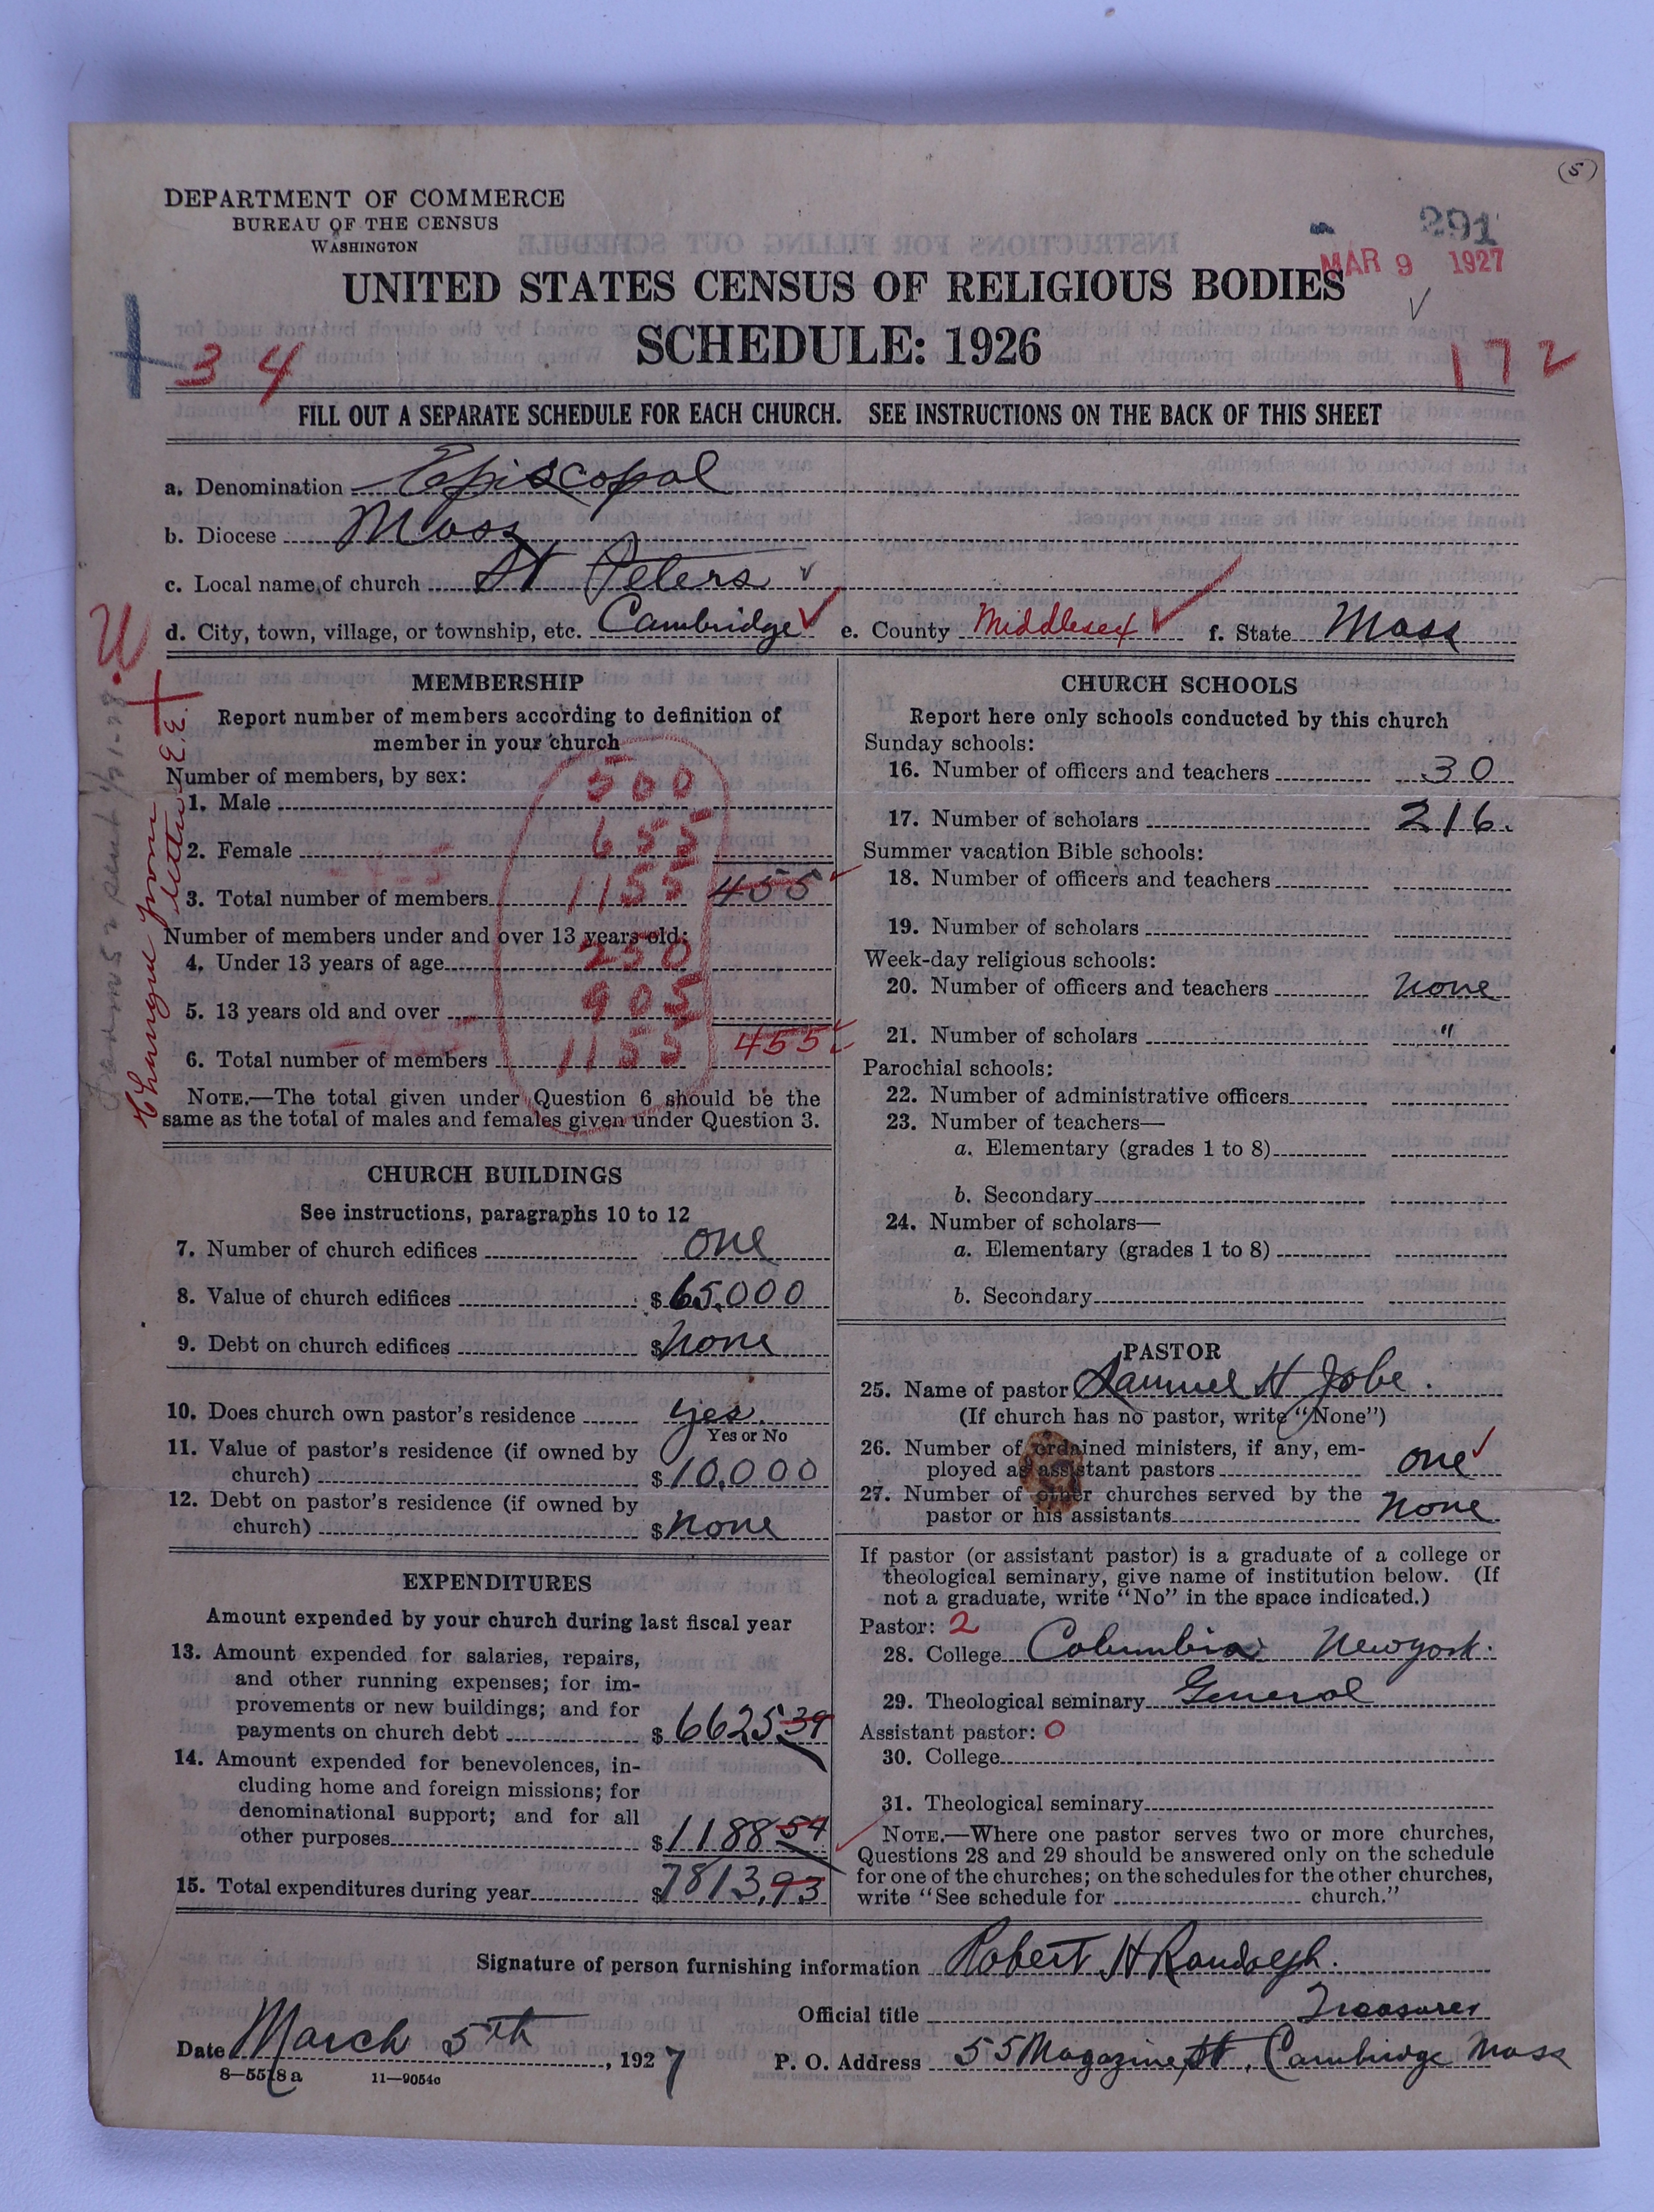 (5)
DEPARTMENT OF COMMERCE
BUREAU OF THE CENSUS
WASHINGTON
291
MAR 9 1927
UNITED STATES CENSUS OF RELIGIOUS BODIES
SCHEDULE: 1926
34
172
FILL OUT A SEPARATE SCHEDULE FOR EACH CHURCH. SEE INSTRUCTIONS ON THE BACK OF THIS SHEET
a. Denomination Episcopal
b. Diocese Mass
c. Local name of church St Peters
d. City, town, village, or township, etc. Cambridge e. County Middlesex f. State Mass
MEMBERSHIP
Report number of members according to definition of
member in your church
Number of members, by sex:
1. Male 500
2. Female 655
3. Total number of members 1155 455
Number of members under and over 13 years old:
4. Under 13 years of age 250
5. 13 years old and over 905
6. Total number of members 1155 455
NOTE.—The total given under Question 6 should be the
same as the total of males and females given under Question 3.
Change from letter E.E.
CHURCH BUILDINGS
See instructions, paragraphs 10 to 12
7. Number of church edifices one
8. Value of church edifices $65,000
9. Debt on church edifices $none
10. Does church own pastor's residence yes.
Yes or No
11. Value of pastor's residence (if owned by
church) $10,000
12. Debt on pastor's residence (if owned by
church) $none
EXPENDITURES
Amount expended by your church during last fiscal year
13. Amount expended for salaries, repairs,
and other running expenses; for im-
provements or new buildings; and for
payments on church debt $6625 39
14. Amount expended for benevolences, in-
cluding home and foreign missions; for
denominational support; and for all
other purposes $1188 54
15. Total expenditures during year $7813,93
CHURCH SCHOOLS
Report here only schools conducted by this church
Sunday schools:
16. Number of officers and teachers 30
17. Number of scholars 216.
Summer vacation Bible schools:
18. Number of officers and teachers
19. Number of scholars
Week-day religious schools:
20. Number of officers and teachers none
21. Number of scholars "
Parochial schools:
22. Number of administrative officers
23. Number of teachers—
a. Elementary (grades 1 to 8)
b. Secondary
24. Number of scholars—
a. Elementary (grades 1 to 8)
b. Secondary
PASTOR
25. Name of pastor Samuel H Jobe.
(If church has no pastor, write "None")
26. Number of ordained ministers, if any, em-
ployed as assistant pastors one
27. Number of other churches served by the
pastor or his assistants none
If pastor (or assistant pastor) is a graduate of a college or
theological seminary, give name of institution below. (If
not a graduate, write "No" in the space indicated.)
Pastor: 2
28. College Columbia New york.
29. Theological seminary General
Assistant pastor: 0
30. College
31. Theological seminary
NOTE.—Where one pastor serves two or more churches,
Questions 28 and 29 should be answered only on the schedule
for one of the churches; on the schedules for the other churches,
write "See schedule for church."
Signature of person furnishing information Robert H Randolph.
Official title Treasurer
Date March 5th, 1927 P. O. Address 55 Magazine St, Cambridge Mass
8—5518a 11—9054c